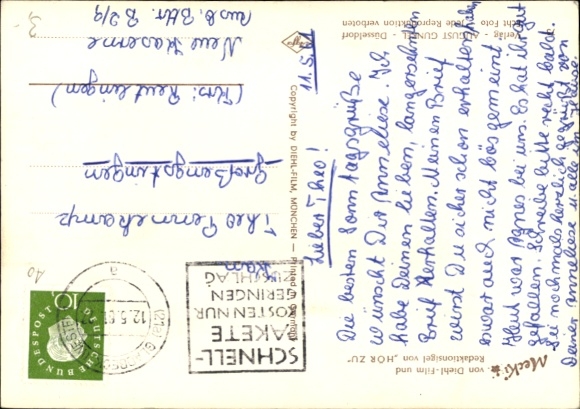 Mecki
von Diehl-Film und
Redaktionsigel von „HÖR ZU"
Verlag AUGUST GUNKEL, Düsseldorf
Echt Foto Jede Reproduktion verboten
Copyright by DIEHL-FILM, MÜNCHEN — Printed in Germany
11.5.61
Lieber Theo!
Die besten Sonntagsgrüße
wünscht Dir Anneliese. Ich
habe Deinen lieben, langersehnten
Brief erhalten. Meinen Brief
wirst Du sicher schon erhalten haben,
er war auch nicht bös gemeint.
Heut war Agnes bei uns. Es hat ihr gut
gefallen. Schreibe bitte recht bald.
Sei nochmals herzlich gegrüßt von
Deiner Anneliese u. alle zu Hause.
DEUTSCHE BUNDESPOST
10
12.5.61
a
SCHNELL-
PAKETE
KOSTEN NUR
GERINGEN
ZUSCHLAG
Theo Pennekamp
Großengstingen
(Krs. Reutlingen)
Neue Kaserne
Ausb. Bttr. B 2/9
3,-